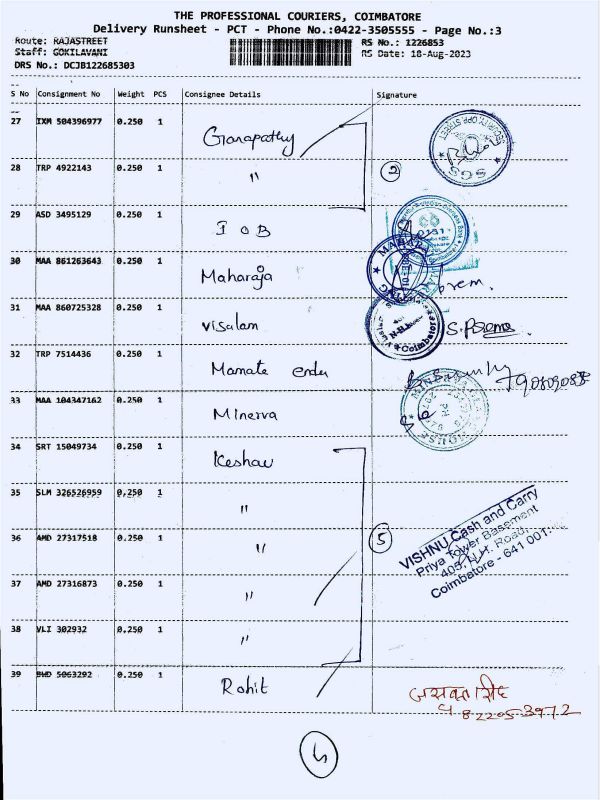 THE PROFESSIONAL COURIERS, COIMBATORE
Delivery Runsheet - PCT - Phone No.:0422-3505555 - Page No.:3
Route: RAJASTREET RS No.: 1226853
Staff: GOKILAVANI RS Date: 18-Aug-2023
DRS No.: DCJB122685303
S No Consignment No Weight PCS Consignee Details Signature
27 IXM 504396977 0.250 1 Ganapathy
SECURITY, OPP STREET
SGS
28 TRP 4922143 0.250 1 " 2
29 ASD 3495129 0.250 1 I O B
30 MAA 861263643 0.250 1 Maharaja
31 MAA 860725328 0.250 1 Visalam
Coimbatore
32 TRP 7514436 0.250 1 Mamate
33 MAA 104347162 0.250 1 Minerva
34 SRT 15049734 0.250 1 Keshav
35 SLM 326526959 0.250 1 "
36 AMD 27317518 0.250 1 " 5
VISHNU Cash and Carry
Priya Tower Basement
405, N.H. Road,
Coimbatore - 641 001.
37 AMD 27316873 0.250 1 "
38 VLI 302932 0.250 1 "
39 BWD 5063292 0.250 1 Rohit